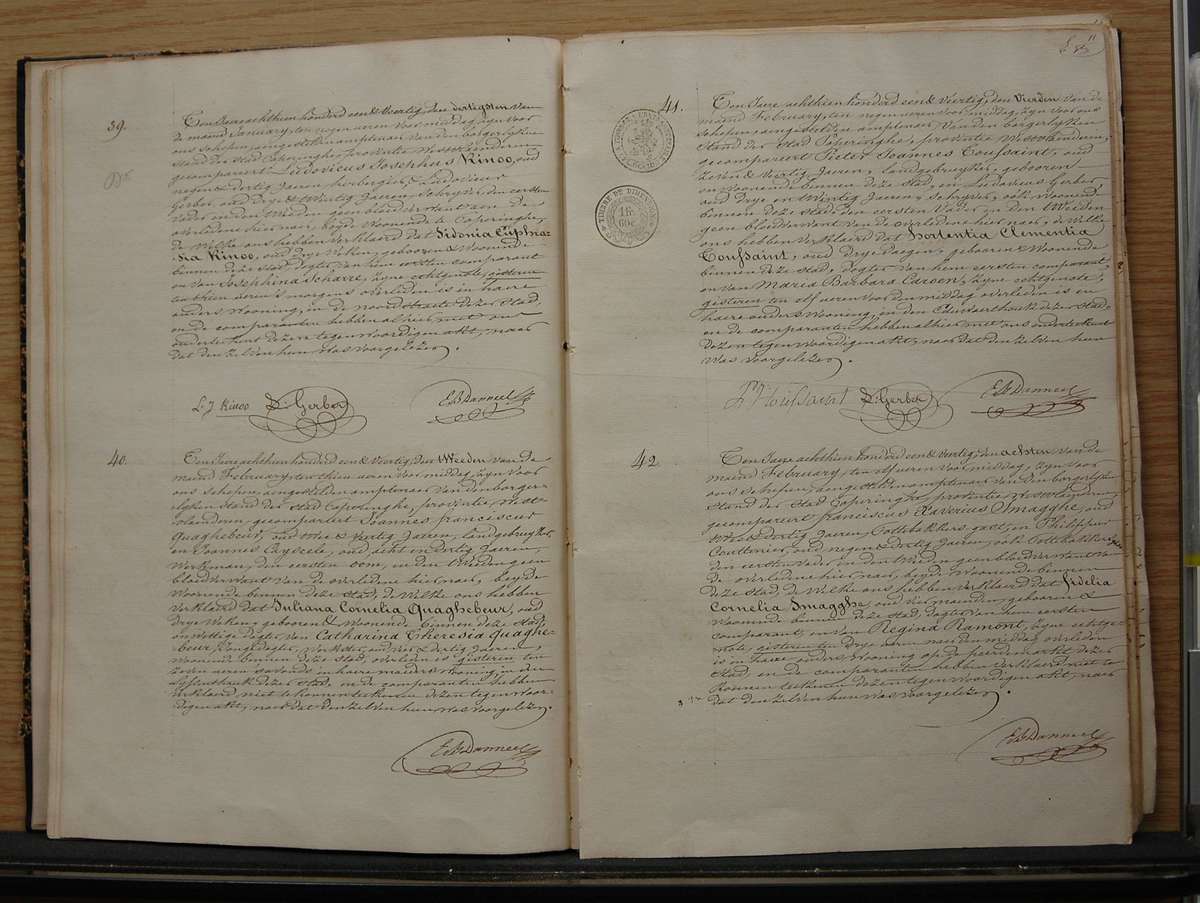 39.
Ten Jaere achthien honderd een & Veertig, den dertigsten van
de maend January, ten negen uren Voormiddag, zyn voor
ons schepen, aengestelden amptenaer van den borgerlyken
Stand der Stad Poperinghe, provintie Westvlaenderen
gecompareert Ludovicus Josephus Kinoo, oud
negen & dertig Jaeren, herbergier, & Ludovicus
Gerbor, oud Drye & Vyftig Jaeren, Schryver, den eersten
Vader en den Tweeden geen bloedverwant van de
overledene hier naer, beyde Woonende te Poperinghe,
de Welke ons hebben Verklaerd dat Sidonia Euphra-
sia Kinoo, oud Drye Weken, gebooren & Woonende
binnen deze Stad, dogter van hem eersten comparant
en van Josephina Scharre, zyne echtgenote, gisteren
ten thien uren 's morgens overleden is in haere
ouders Wooning, in de noordstraete dezer Stad,
en de comparanten hebben alhier met ons
onderteekent dezen tegenwoordigen akt, naer
dat den zelven hun Was voorgelezen.
L. J. Kinoo D. Gerbor E. B. Danneel
40.
Ten Jaere achthien honderd een & Veertig, den tWeeden van de
maend February, ten thien uren Voormiddag, zyn voor
ons Schepen, aengestelden amptenaer van den borger-
lyken Stand der Stad Poperinghe, provintie, West-
vlaenderen, gecompareert Joannes franciscus
Quaghebeur, oud twee & Veertig Jaeren, Landgebruyker,
en Joannes Cryseele, oud acht en dertig Jaeren,
Werkman, den eersten oom, en den tWeeden geen
bloedverwant van de overledene hier naer, beyde
Woonende binnen deze Stad, de Welke ons hebben
Verklaerd dat Juliana Cornelia Quaghebeur, oud
Drye Weken, gebooren & Woonende binnen deze Stad,
onwettige dogter van Catharina Theresia Quaghe-
beur, Jongedogter, Werkster, oud Vier & dertig Jaeren,
Woonende binnen deze Stad, overleden is gisteren ten
zeven uren 's avonds, in haere moeders Wooning, in den
hoek dezer Stad, en de comparanten hebben
verklaerd niet te konnen teekenen dezen tegenwoor-
digen akt, naer dat den zelven hun Was voorgelezen.
E. B. Danneel
11
41.
Ten Jaere achthien honderd een & Veertig, den Vierden Van de
maend February, ten negen uren Voor middag, zyn voor ons
schepen, aengestelden amptenaer Van den borgerlyken
Stand der Stad Poperinghe, provintie Westvlaenderen,
gecompareert Pieter Joannes Toussaint, oud
Zeven & Veertig Jaeren, landgebruyker, gebooren
en Woonende binnen deze Stad, en Ludovicus Gerbor,
oud Drye en Vyftig Jaeren, Schryver, ook Woonende
binnen deze Stad, den eersten Vader en den tWeeden
geen bloedverwant Van de overledene hier naer, de Welke
ons hebben Verklaerd dat Hortentia Clementia
Toussaint, oud Drye dagen, gebooren & Woonende
binnen deze Stad, Dogter van hem eersten comparant
en van Maria Barbara Caroen, Zyne echtgenote,
gisteren ten elf uren Voor de middag overleden is in
haere ouders Wooning, in den Edewaerthoek dezer Stad,
en de comparanten hebben alhier met ons onderteekent
dezen tegenwoordigen akt, naer dat den zelven hun
Was voorgelezen.
TIMBRE ET DIMENSION
45
60c
P J Toussaint D. Gerbor E. B. Danneel
42.
Ten Jaere achthien honderd een & Veertig, den achsten van de
maend February, ten elf uren Voormiddag, zyn voor
ons Schepen, aengestelden amptenaer Van den borgerlyken
Stand der Stad Poperinghe, provintie Westvlaenderen,
gecompareert franciscus Xaverius Smagghe, oud
& dertig Jaeren, Pottebakkers gast, en Philippus
Couttenier, oud negen & dertig Jaeren, ook Pottebakkers gast,
den eersten Vader en den tWeeden geen bloedverwant van
de overledene hier naer, beyde Woonende binnen
deze Stad, de Welke ons hebben verklaerd dat fidelia
Cornelia Smagghe, oud Vier maenden, gebooren &
Woonende binnen deze Stad, dogter van hem eersten
comparant, en van Regina Ramont, zyne echtge-
note, gisteren ten Drye uren naer de middag overleden
is in haere ouders Wooning op de peerdemarkt dezer
Stad en de comparanten hebben Verklaerd niet te
konnen teekenen dezen tegenwoordigen akt, naer
dat den zelven hun Was voorgelezen.
E. B. Danneel